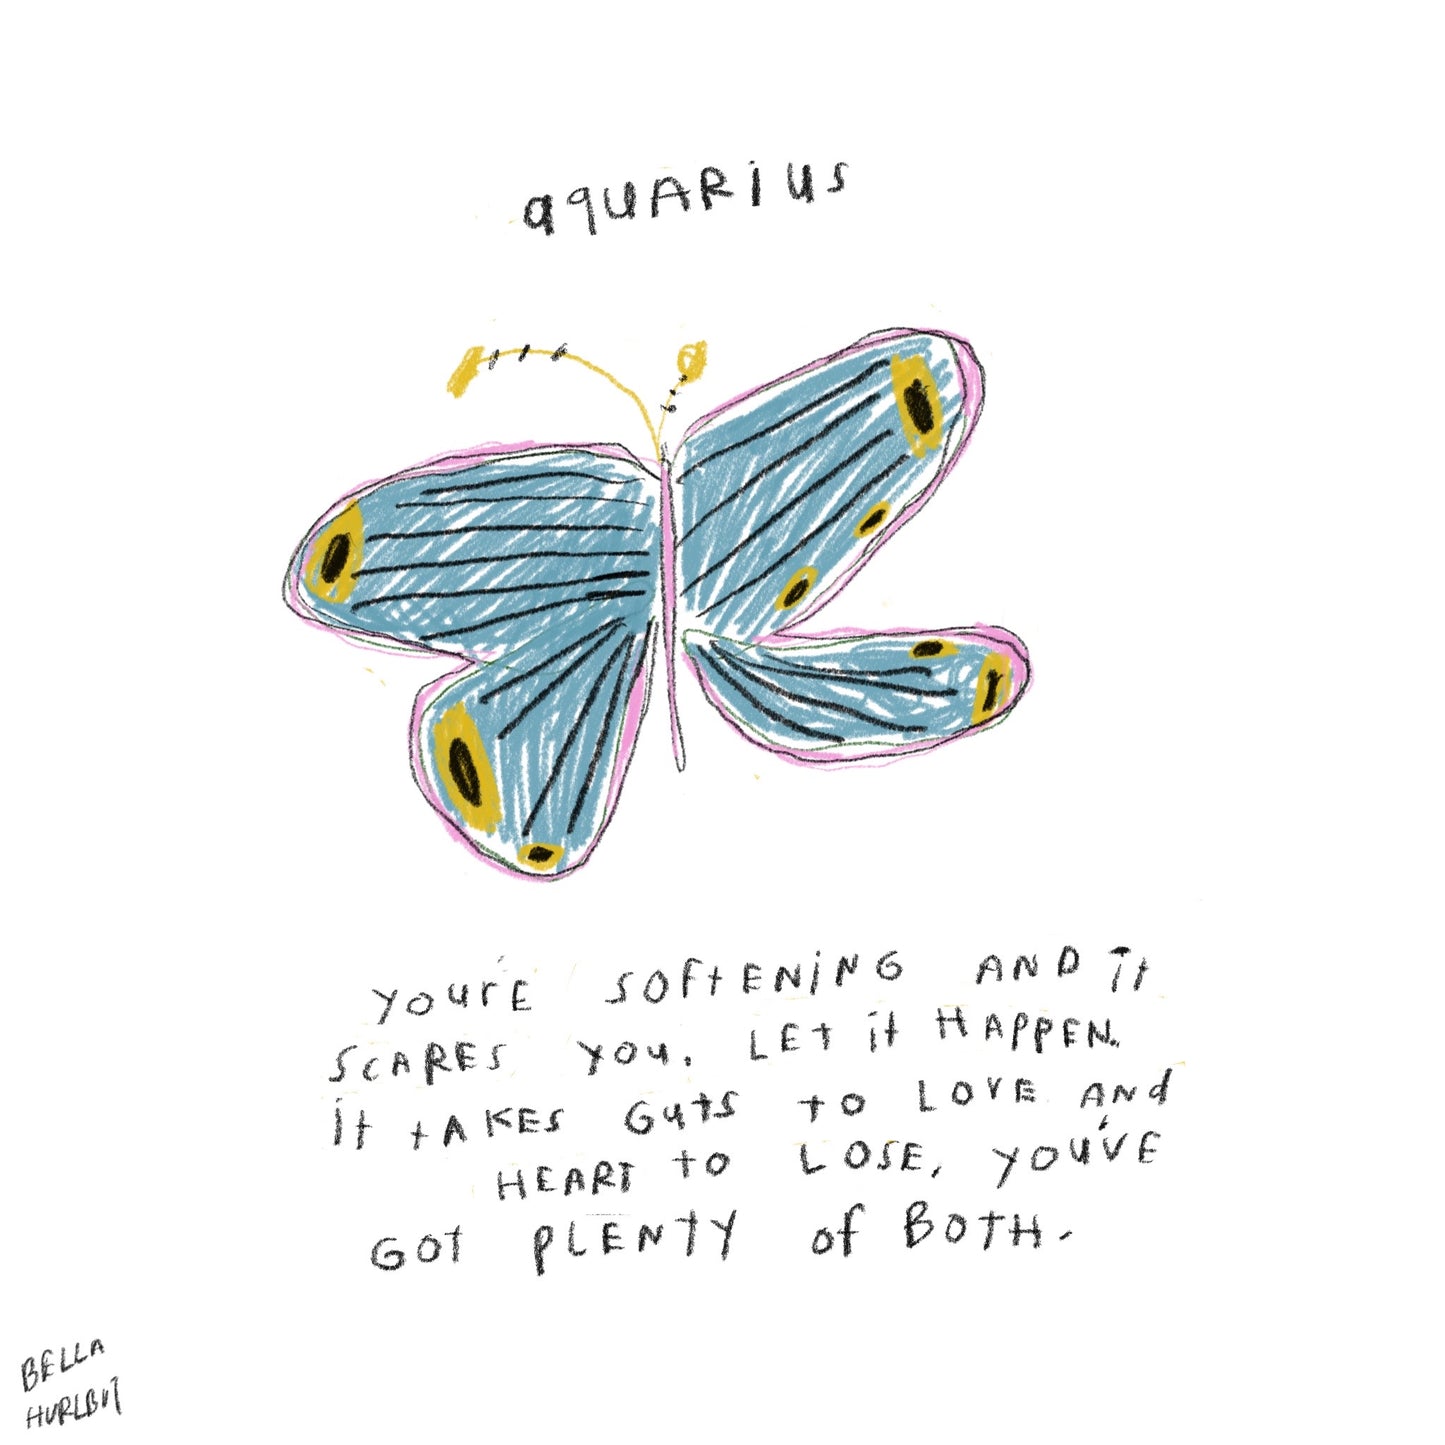 aquarius
you're softening and it
scares you. Let it happen.
it takes guts to love and
heart to lose, you've
got plenty of both.
BELLA
HURLBUT